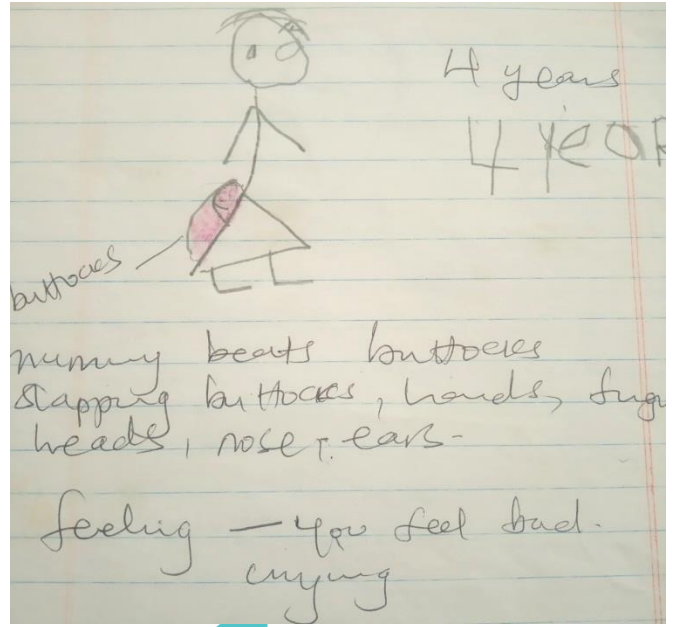 4 years
4 year
buttocks
mummy beats buttocks
slapping buttocks, hands,
heads, nose, ears-
feeling — you feel bad.
crying